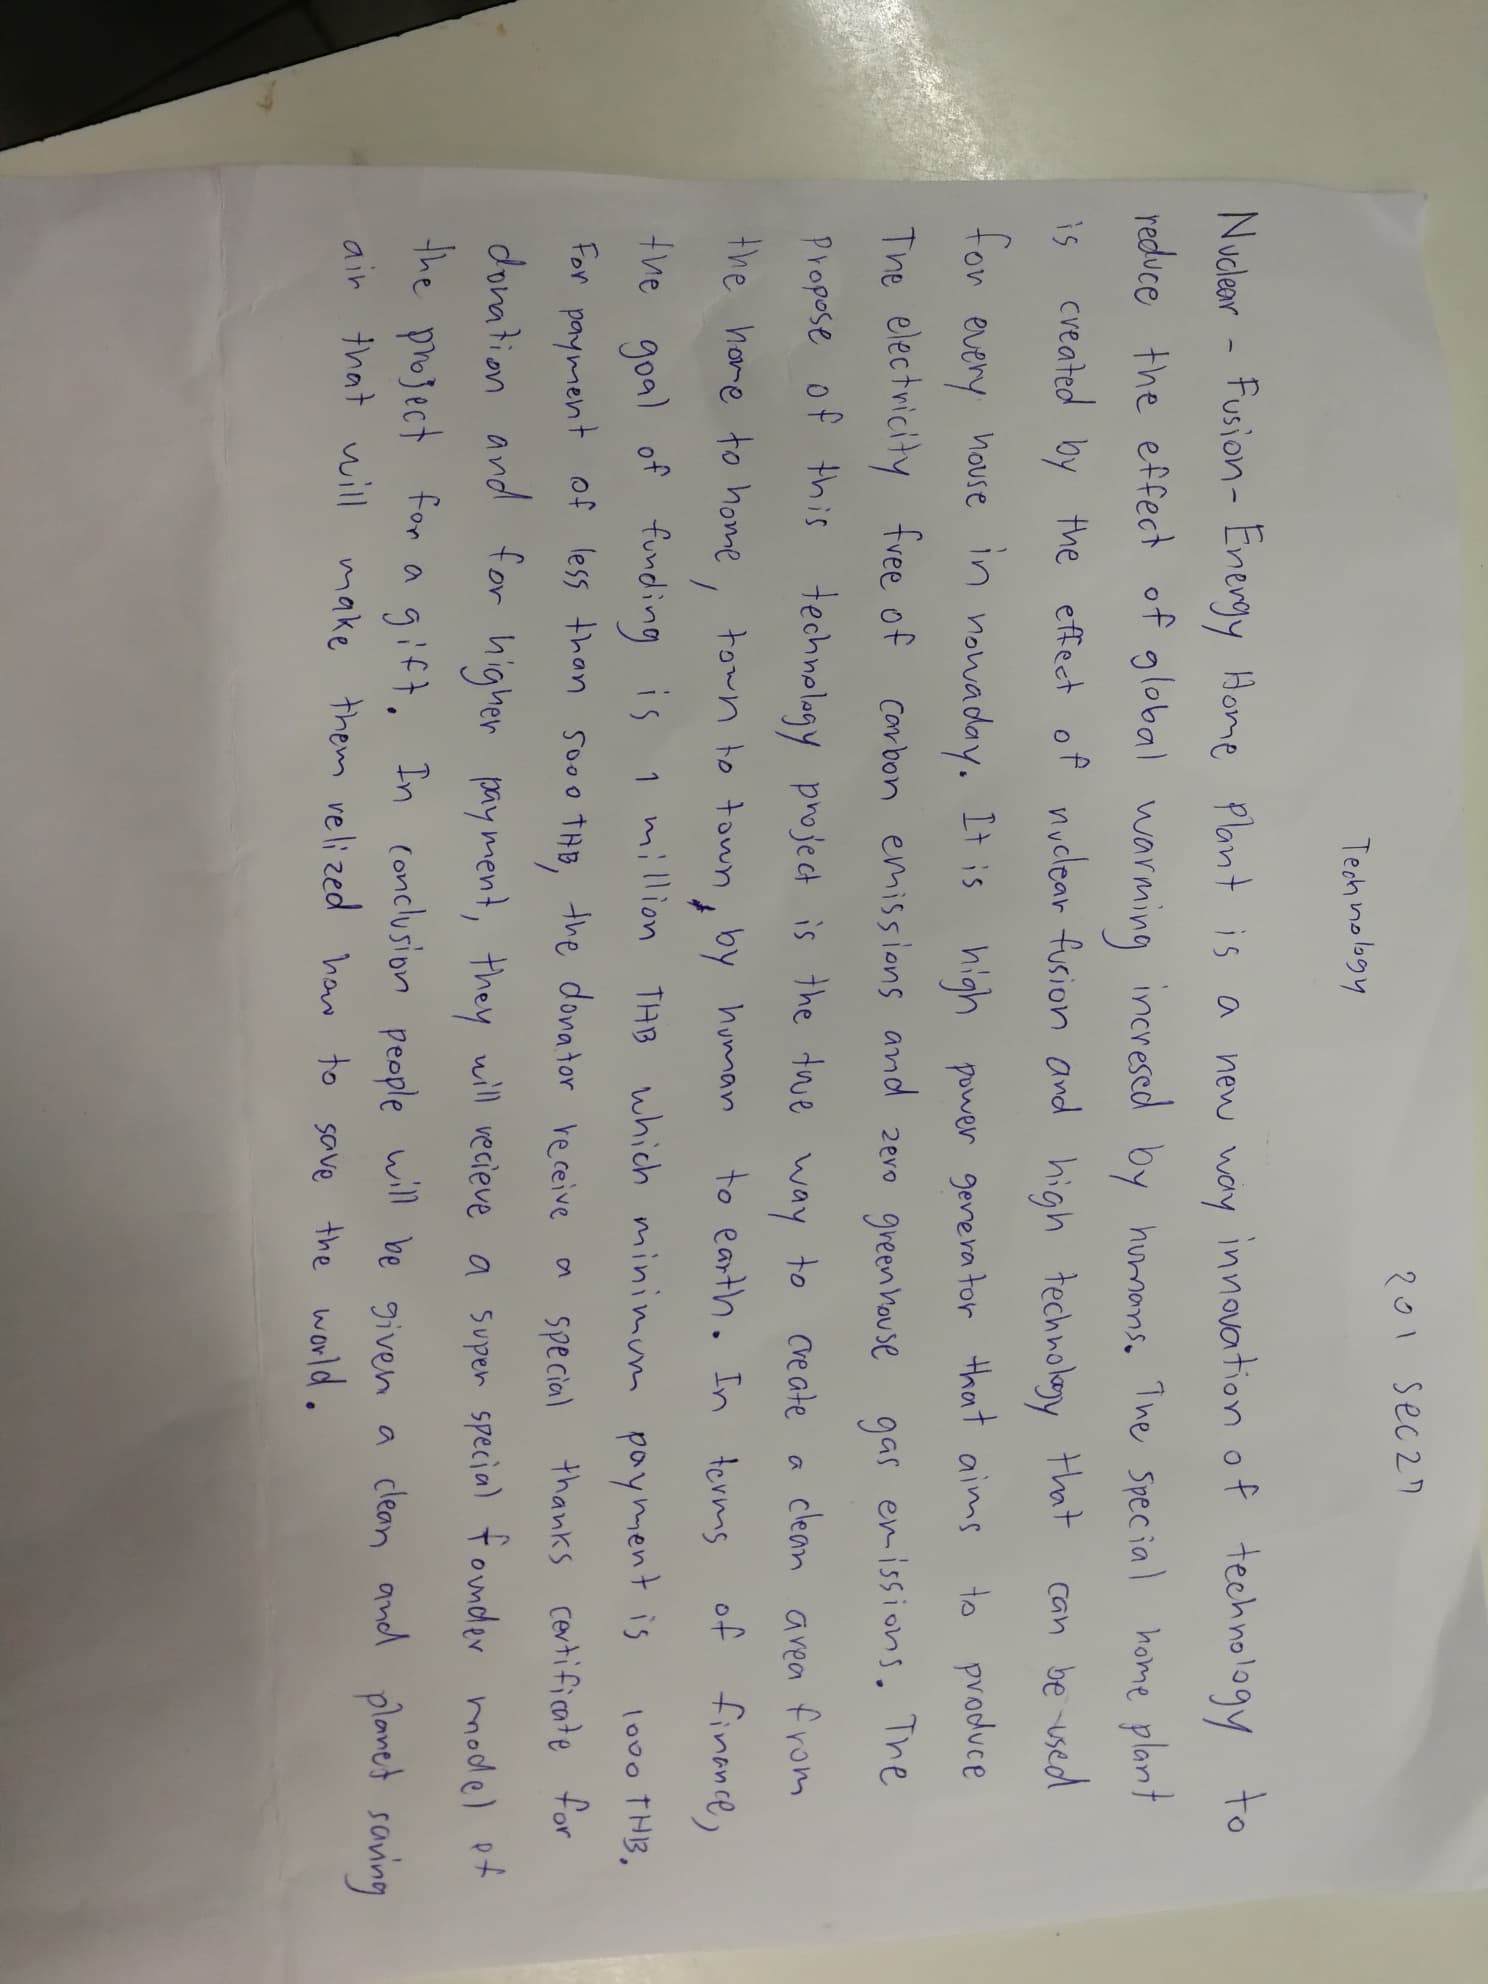 201 sec27
Technology
Nuclear - Fusion - Energy Home Plant is a new way innovation of technology to
reduce the effect of global warming incresed by humans. The special home plant
is created by the effect of nuclear fusion and high technology that can be used
for every house in nowaday. It is high power generator that aims to produce
The electricity free of carbon emissions and zero greenhouse gas emissions. The
propose of this technology project is the true way to create a clean area from
the home to home, town to town, by human to earth. In terms of finance,
the goal of funding is 1 million THB which minimum payment is 1000 THB.
For payment of less than 5000 THB, the donator receive a special thanks certificate for
donation and for higher payment, they will recieve a super special founder model of
the project for a gift. In conclusion people will be given a clean and planet saving
air that will make them relized how to save the world.